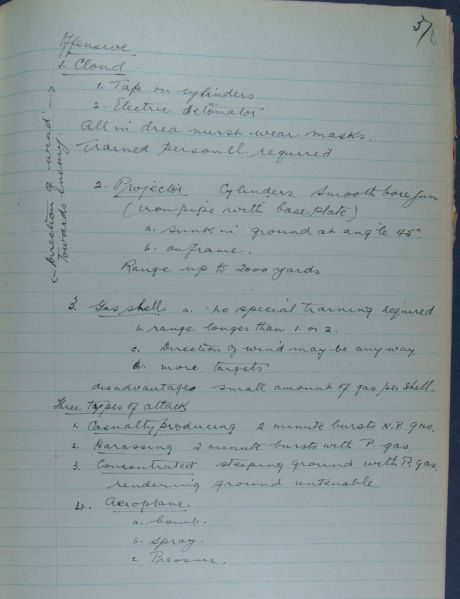 37
Offensive.
1. Cloud
1. Tap on cylinders
2. Electric detonator
All in area must wear masks.
Trained personll. required
<- Direction of wind ->
towards enemy.
2. Projector. Cylinders. Smooth bore gun
(iron pipe with base plate)
a. sunk in ground at angle 45°
b. on frame.
Range up to 2000 yards
3. Gas shells a. no special training required
b. range longer than 1. or 2.
c. Direction of wind may be any way.
d. more targets
disadvantages small amount of gas per shell.
Three types of attack
1. Casualty producing 2 minute bursts N.P. gas.
2. Harassing 2 minute bursts with P. gas.
3. Concentrated steeping ground with P. gas.
rendering ground untenable
4. Aeroplane.
a. bomb.
b. spray.
c. Pressure.